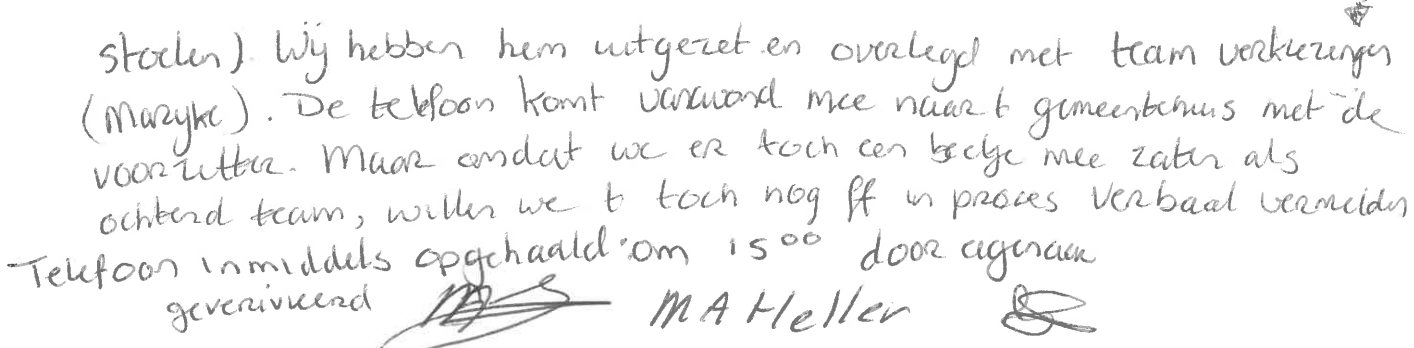 stoelen). Wij hebben hem uitgezet en overlegd met team verkiezingen
(Marijke). De telefoon komt vanavond mee naar t gemeentehuis met de
voorzitter. Maar omdat we er toch een beetje mee zaten als
ochtend team, willen we t toch nog ff in proces verbaal vermelden
Telefoon inmiddels opgehaald om 15 00 door eigenaar
geverivieerd M A Heller